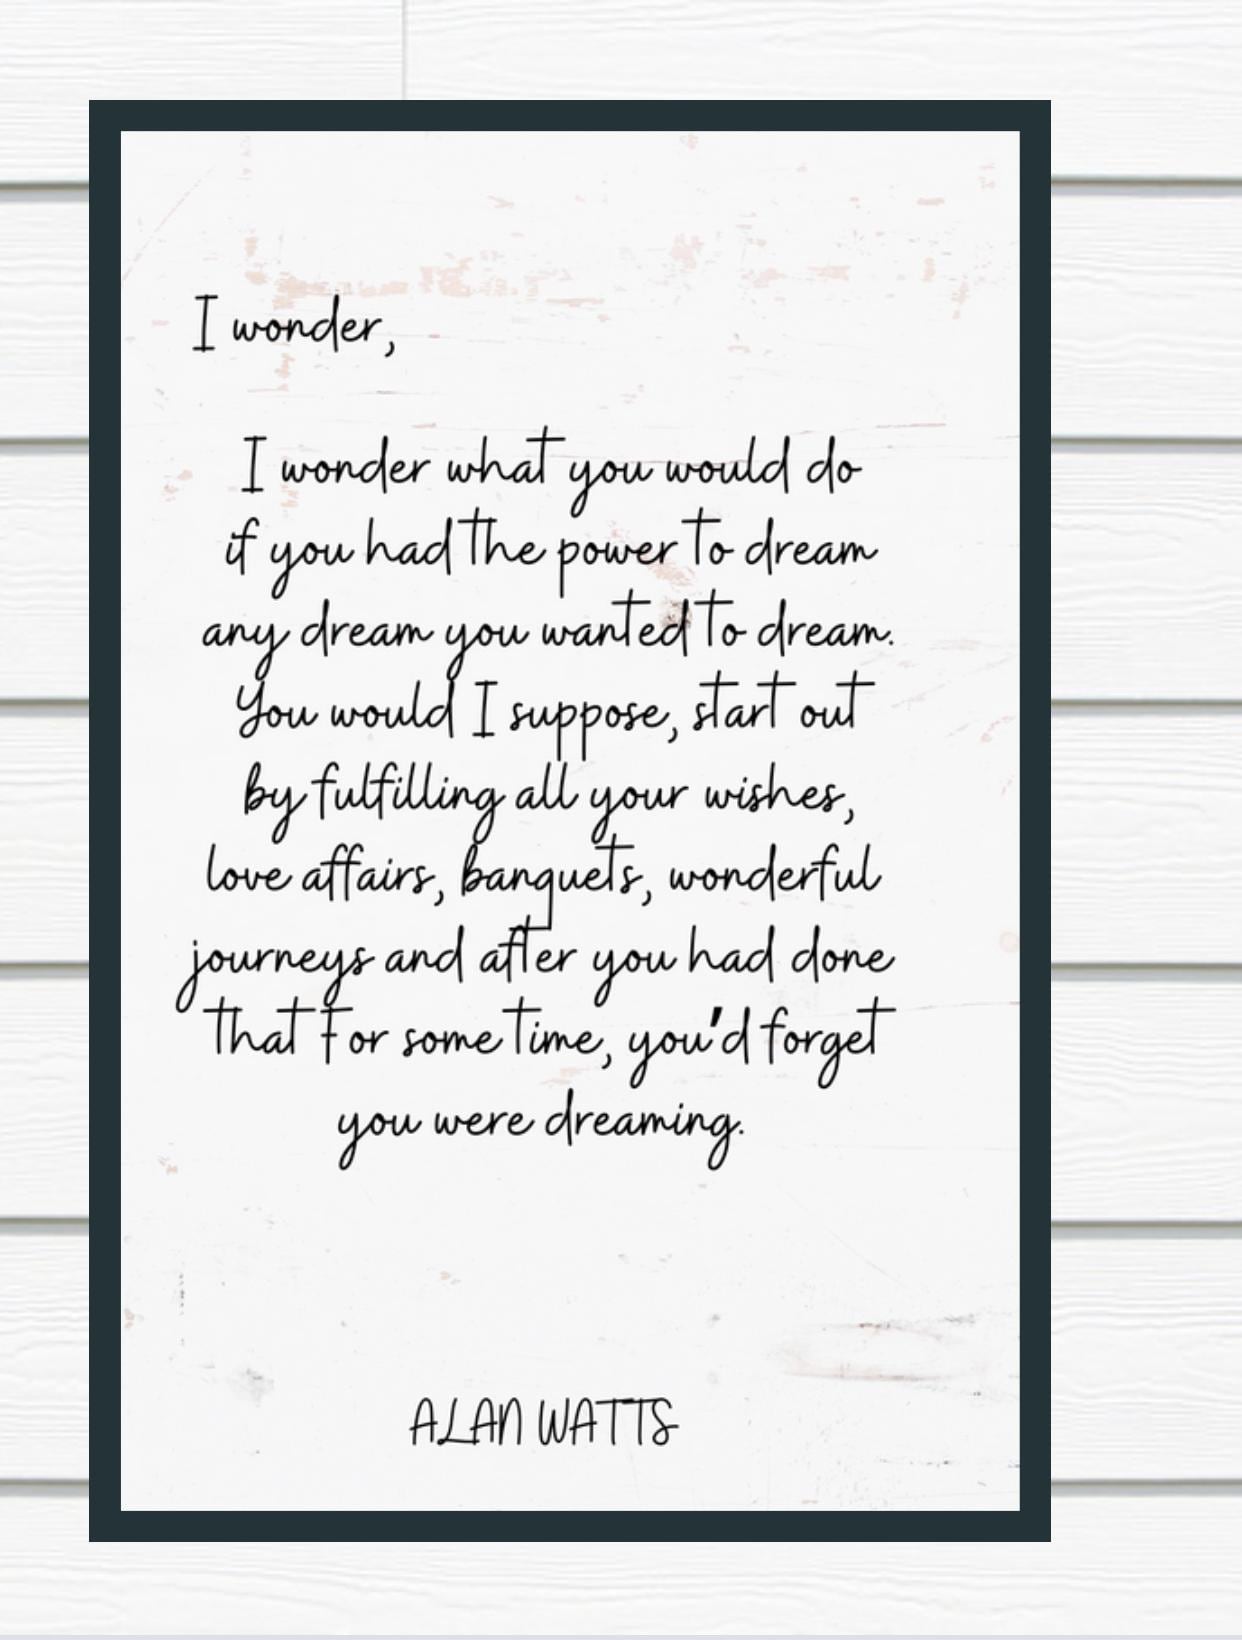 I wonder,
I wonder what you would do
if you had the power to dream
any dream you wanted to dream.
You would I suppose, start out
by fulfilling all your wishes,
love affairs, banquets, wonderful
journeys and after you had done
that for some time, you'd forget
you were dreaming.
ALAN WATTS